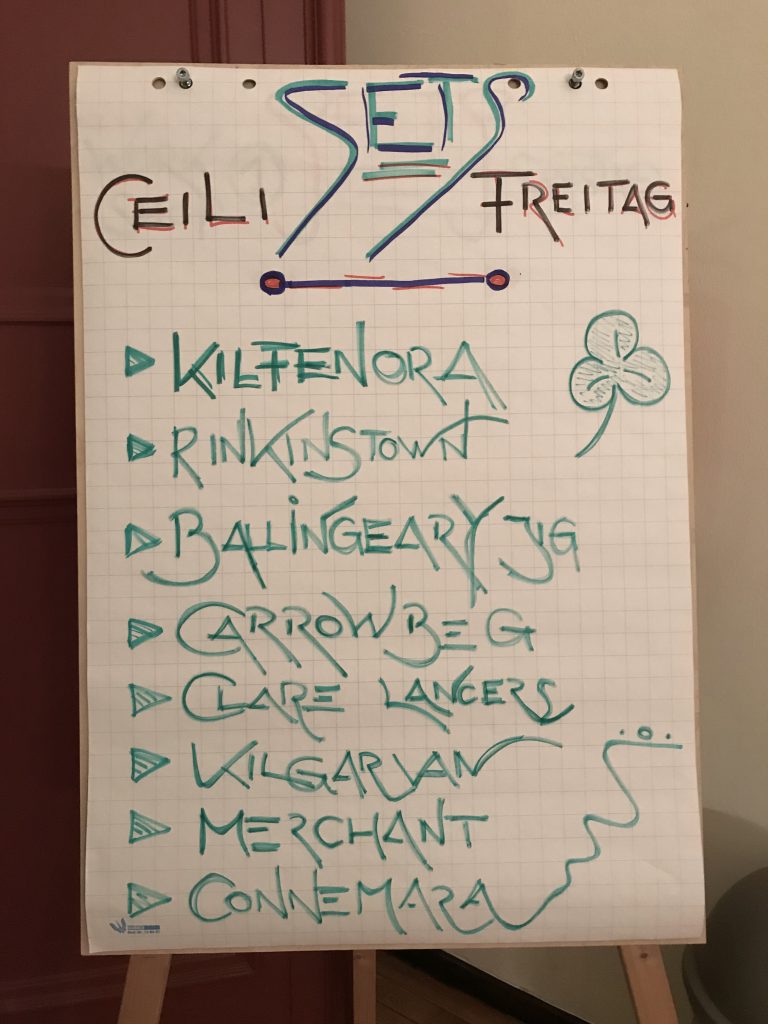 SETS
CEILI FREITAG
KILFENORA
RINKINSTOWN
BALLINGEARY JIG
CARROWBEG
CLARE LANCERS
KILGARVAN
MERCHANT
CONNEMARA